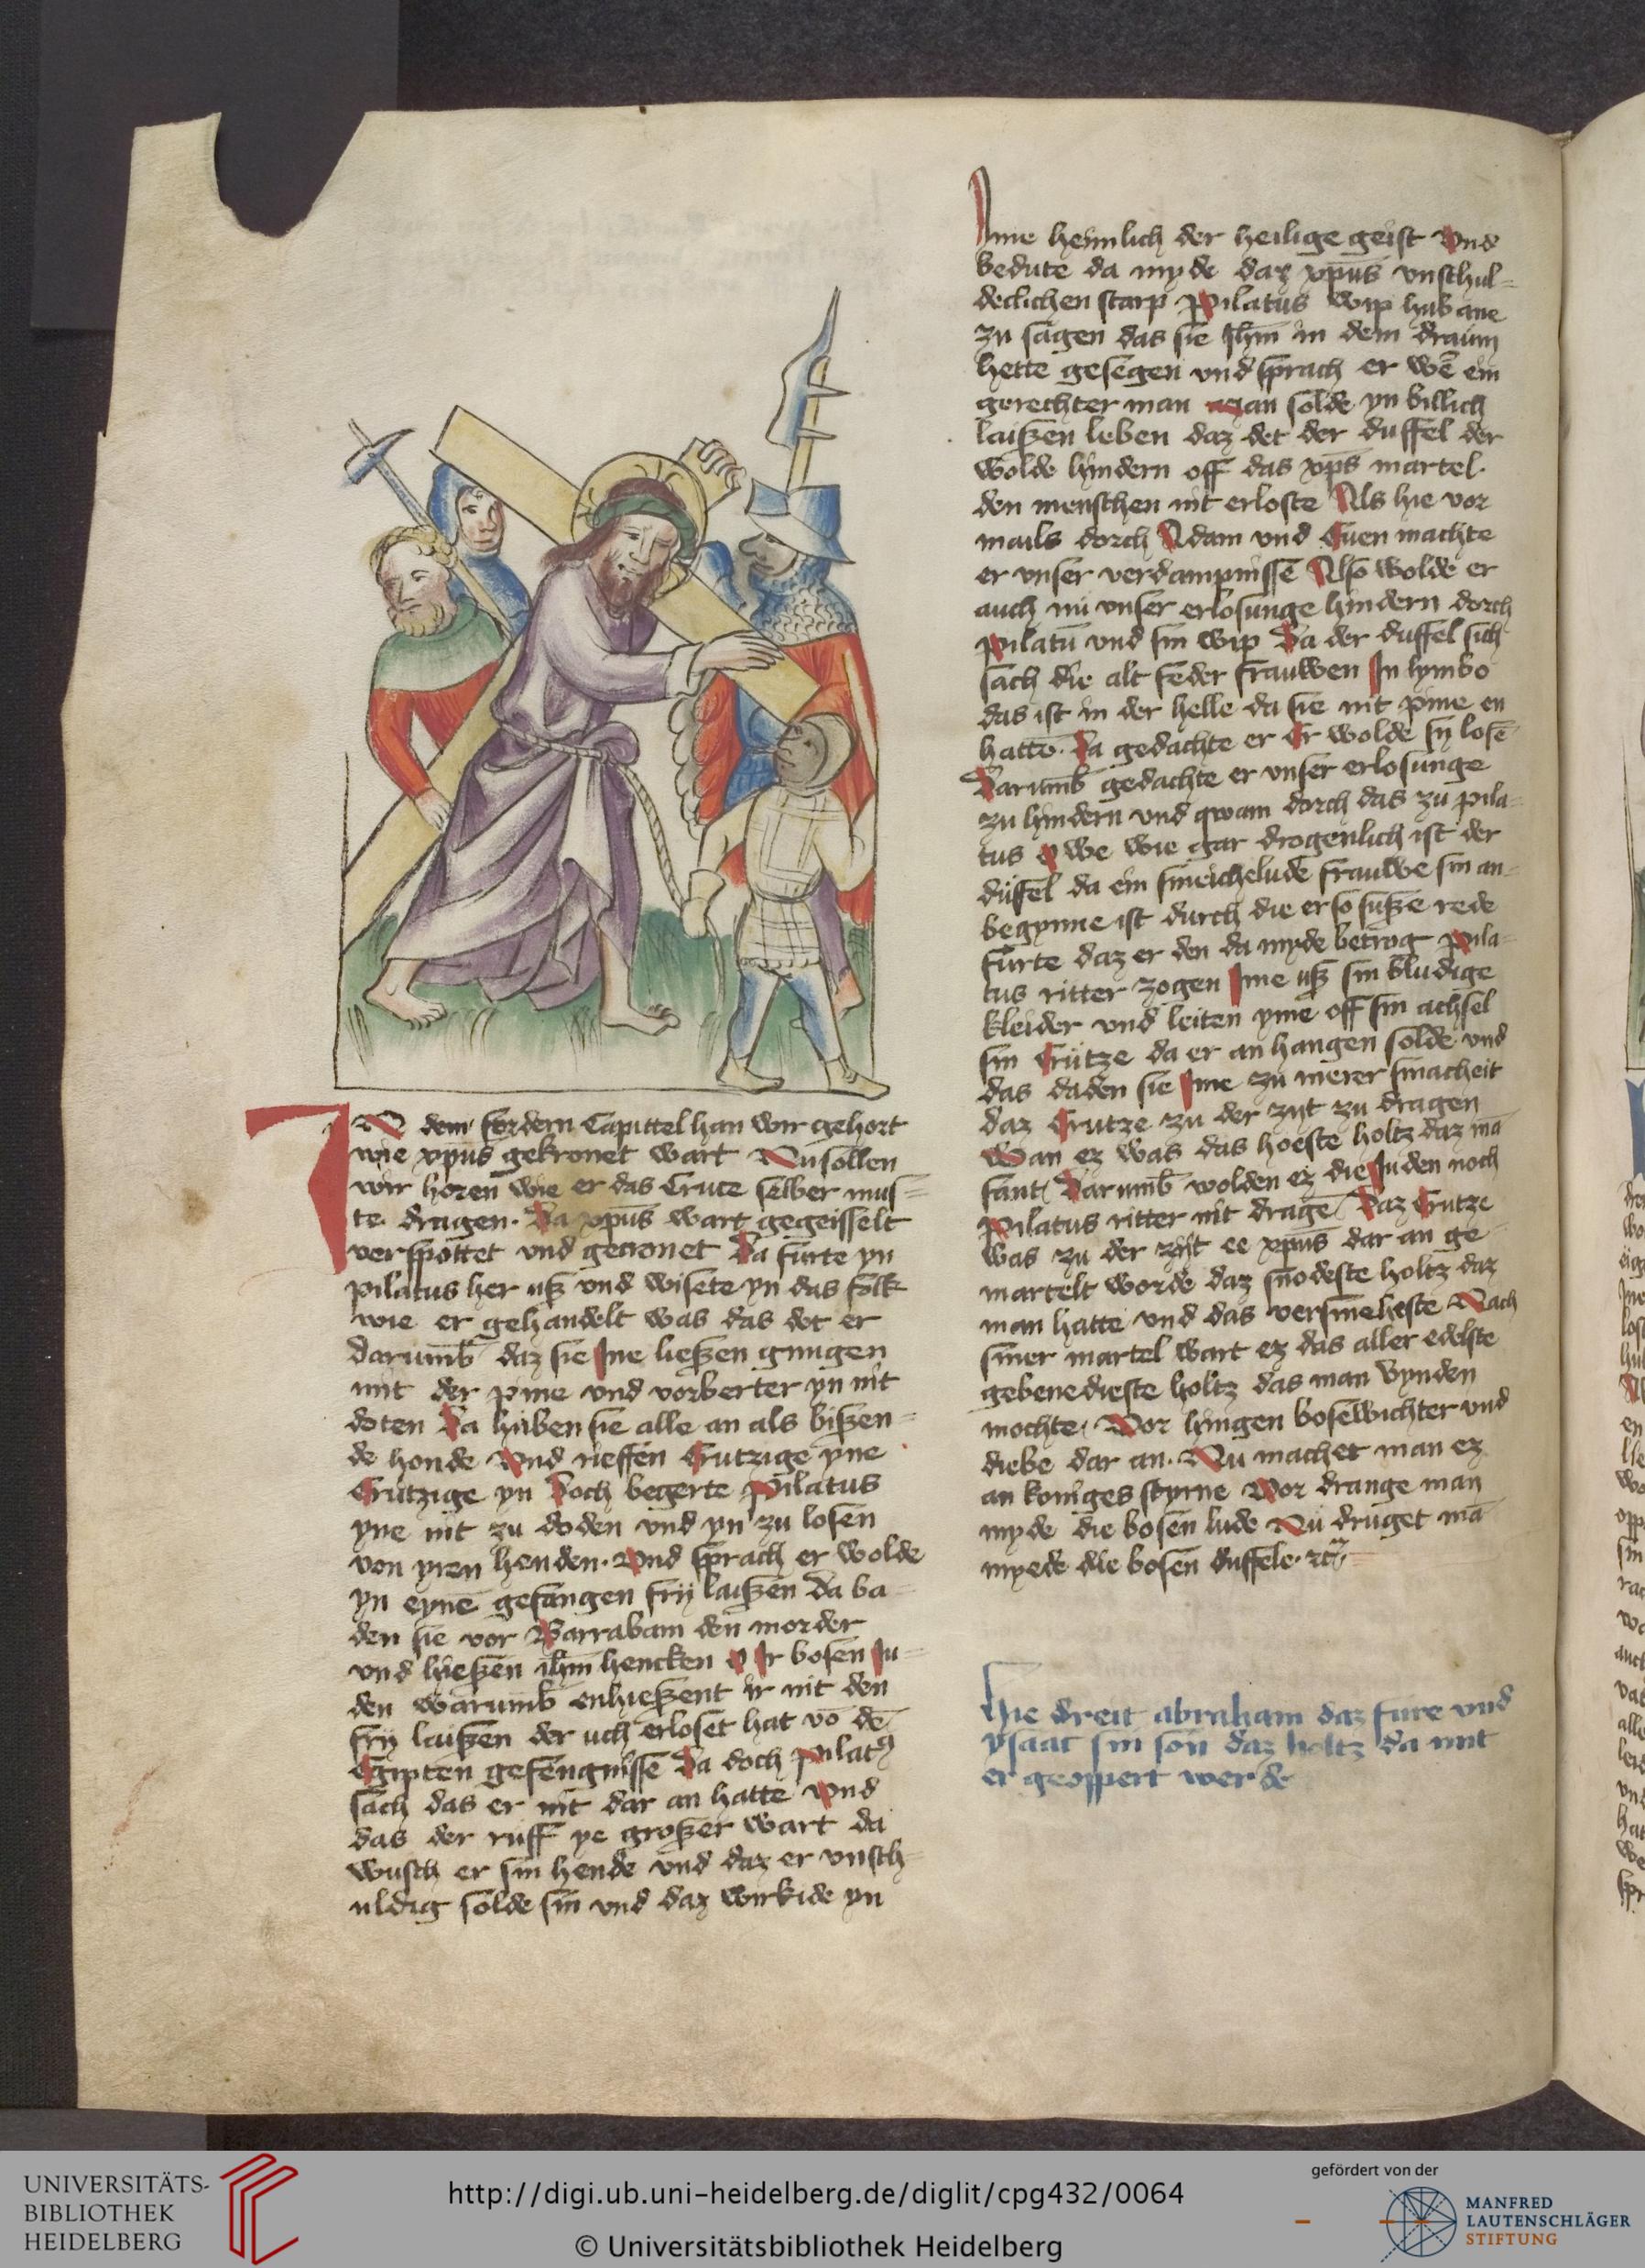 IN dem fordern Capittel han wir gehort
wie xpūs gekronet wart Nu sollen
wir horen wie er das Cruce selber mus=
te dragen. Da xpūs wart gegeisselt
verspottet vnd gecronet Da furte yn
pilatus her uß vnd wisete yn das folk
wie er gehandelt was das det er
darumb daz sie Ine ließen gnugen
mit der pine vnd vorberter yn nit
doten Da huben sie alle an als bißen=
de honde Vnd rieffen Crutzige yne
Crutzige yn Doch begerte Pilatus
yne nit zu doden vnd yn zu losen
von yren henden. Vnd sprach er wolde
yn eynē gefangen frij laißen Da ba=
den sie vor Barrabam den morder
vnd hießen ihm̄ hencken O Ir bosen Ju=
den warumb enhießent ir nit den
frij laißen der uch erloset hat vō dē
Egipten gefengnisse Da doch pilatꝰ
sach das er nit dar an hatte Vnd
das der ruff ye großer wart da
wusch er sin hende vnd daz er vnsch=
uldig solde sin vnd daz wirkide yn
Ime heimlich der heilige geist Vnd
bedute da myde daz xpūs vnschul=
declichen starp Pilatus wip hub ane
zu sagen das sie Ihm̄ in dem draum
hette gesegen vnd sprach er wē ein
gerechter man man solde yn billich
laißen leben daz det der duffel der
wolde hindern off das xp̄s martel
den menschen nit erloste Als hie vor
mails dorch Adam vnd Euen machte
er vnser verdampnisse Also wolde er
auch nu vnser erlosunge hindern dorch
Pilatū vnd sin wip Da der duffel sich
sach die alt feder frauwen In lymbo
das ist in der helle da sie nit pine en
hattē. Da gedachte er Er wolde sy losē
Darumb gedachte er vnser erlosunge
zu hindern vnd qwam dorch das zu pila=
tus O we wie gar drogenlich ist der
duffel da ein smeichelude frauwe sin an=
begynne ist durch die er so suße rede
furte daz er den da myde betrog Pila=
tus ritter zogen Ime uß sin bludige
kleider vnd leiten yme off sin achsel
sin Crütze da er an hangen solde vnd
das daden sie Ime zu merer smacheit
daz Crutze zu der zijt zu dragen
Wan ez was das hoeste holtz daz mā
fant Darumb wolden ez die Juden noch
Pilatus ritter nit dragē Daz Crutze
was zu der zijt ee xpūs dar an ge
martelt worde daz snodeste holtz daz
man hatte vnd das versmeheste Nach
siner martel wart ez das aller edelste
gebenedieste holtz das man vynden
mochte. Vor hingen bosewichter vnd
diebe dar an. Nu machet man ez
an koniges styrne Vor drange man
myde die bosen lude Nu druget mā
myede die bosen duffele. zc̄
Hie dreit abraham daz fure vnd
ysaac sin son daz holtz da mit
er geoppert werde
UNIVERSITÄTS-
BIBLIOTHEK
HEIDELBERG
http://digi.ub.uni-heidelberg.de/diglit/cpg432/0064
© Universitätsbibliothek Heidelberg
gefördert von der
MANFRED
LAUTENSCHLÄGER
STIFTUNG